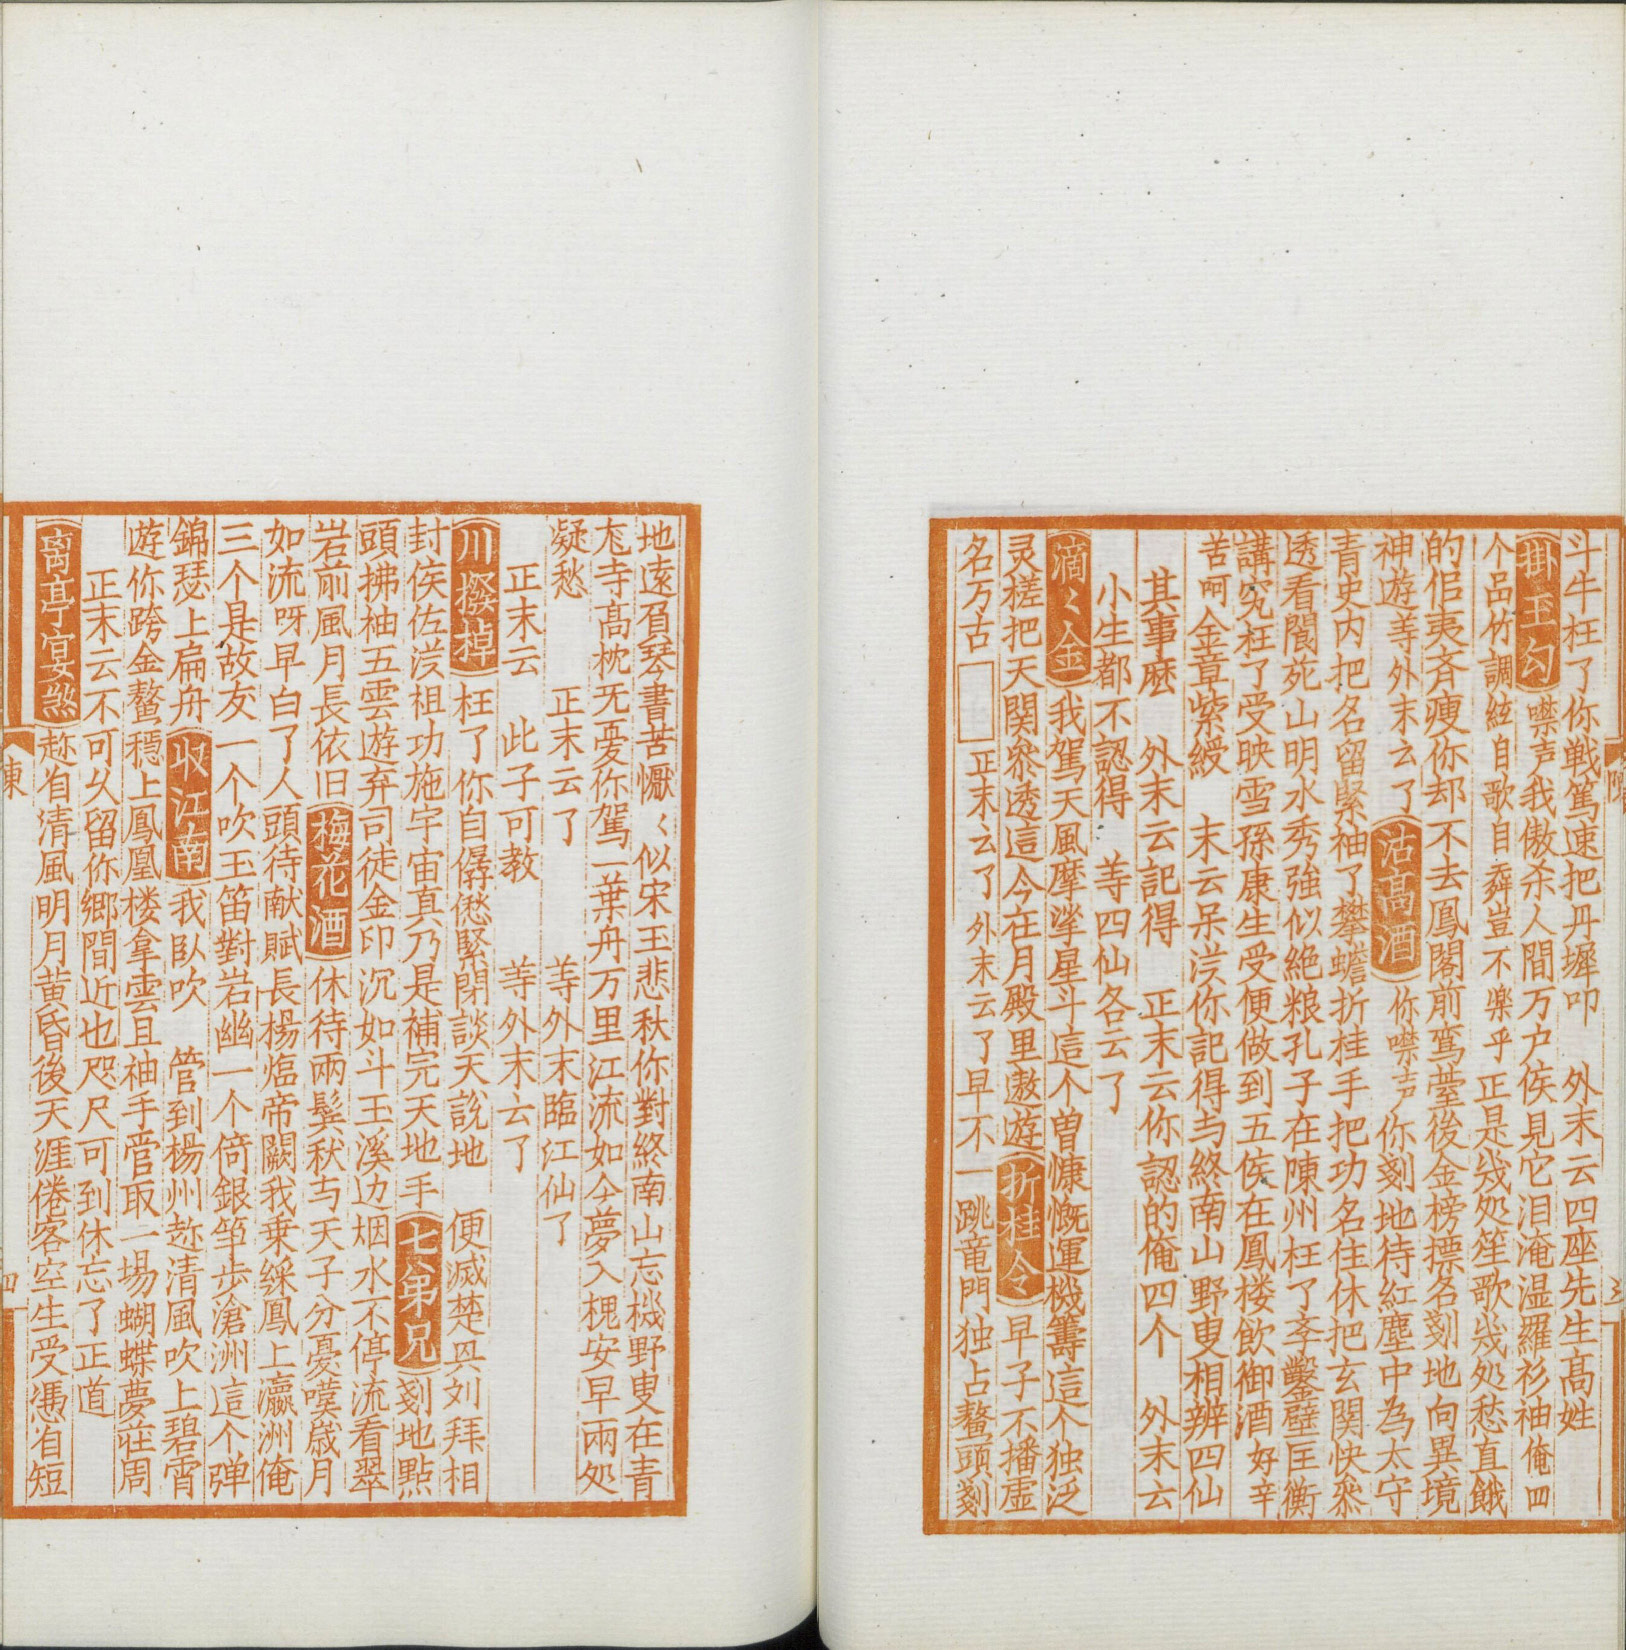 斗牛枉了你戦篤速把丹墀叩　外末云四座先生髙姓
掛玉勾　噤声我傲杀人間万户侯見它泪淹湿羅衫袖俺四
个品竹調絃自歌自舞豈不楽乎正是㡬处笙歌㡬处愁直餓
的伯夷斉痩你却不去鳳閣前鸞䑓後金榜摽名刬地向異境
神遊等外末云了　沽髙酒　你噤声你刬地待紅塵中為太守
青史内把名留緊袖了攀蟾折桂手把功名住休把玄関快叅
透看閬苑山明水秀強似絶粮孔子在陳州枉了李鑿壁匡衡
講究枉了受映雪孫康生受便做到五侯在鳳楼飲御酒好辛
苦呵金章紫綬　末云呆㳕你記得与終南山野叟相辨四仙
其事麽　外末云記得　正末云你認的俺四个　外末云
小生都不認得　等四仙各云了
滴〻金　我駕天風摩挲星斗這个曽慷慨運機籌這个独泛
灵槎把天関叅透這今在月殿里遨遊　折桂令　早子不播虚
名万古　正末云了外末云了早不一跳竜門独占鰲頭刬
地逺負琴書苦懨〻似宋玉悲秋你對終南山忘機野叟在青
尨寺髙枕无憂你駕一葉舟万里江流如仐夢入槐安早兩処
凝愁　正末云了　等外末臨江仙了
正末云　此子可教　等外末云了
川撥掉　枉了你自僝僽緊閉談天說地　便滅楚㒷刘拜相
封侯佐㳕祖功施宇宙真乃是補完天地手　七弟兄　刬地㸃
頭拂柚五雲遊弃司徒金印沉如斗玉溪边烟水不停流看翠
岩前風月長依旧　梅花酒　休待兩髩秋与天子分憂嘆歳月
如流呀早白了人頭待献賦長楊熖帝闕我乗綵鳳上瀛洲俺
三个是故友一个吹玉笛對岩幽一个倚銀筝步滄洲這个弹
錦瑟上扁舟　収江南　我卧吹　管到楊州趂清風吹上碧霄
遊你跨金鰲穏上鳳凰楼拿雲且袖手管取一場蝴蝶夢荘周
正末云不可乆留你鄉間近也咫尺可到休忘了正道
离亭宴煞　趂有清風明月黄昏後天涯倦客空生受慿有短
陳
四